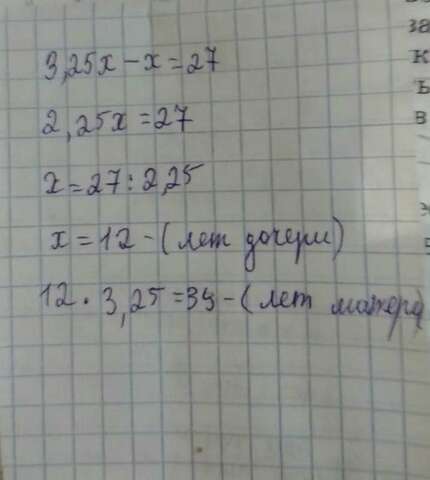 3,25x - x = 27
2,25x = 27
x = 27 : 2,25
x = 12 - (лет дочери)
12 · 3,25 = 39 - (лет матери)
за
к
ъ
в